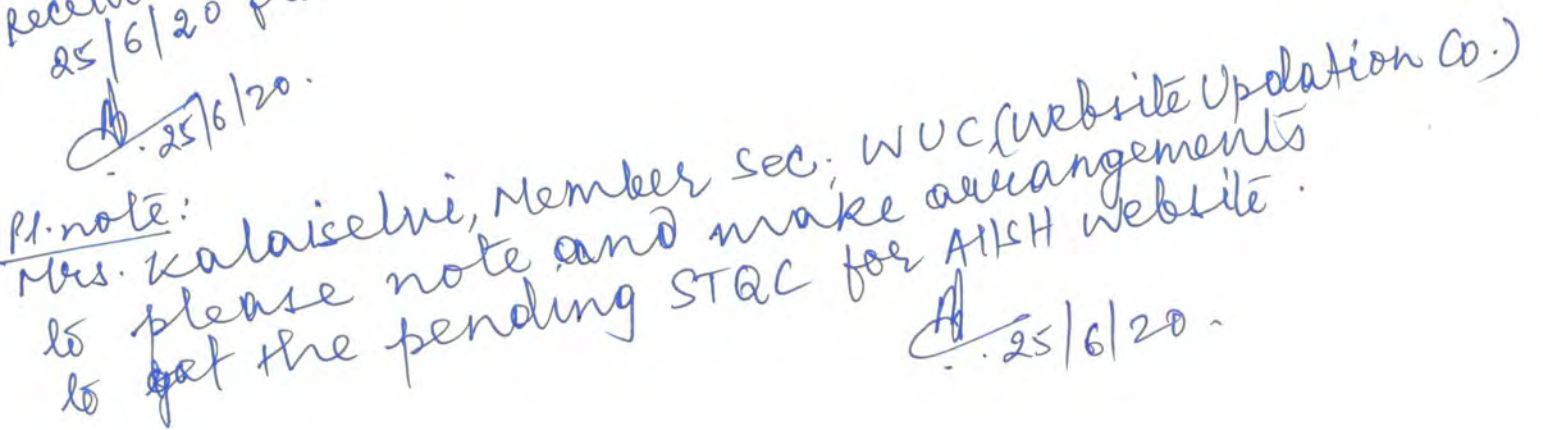 25/6/20
25/6/20.
Pl. note:
Mrs. Kalaiselvi, Member Sec; WUC (Website Updation Co.)
to please note and make arrangements
to get the pending STQC for AIISH website.
25/6/20.